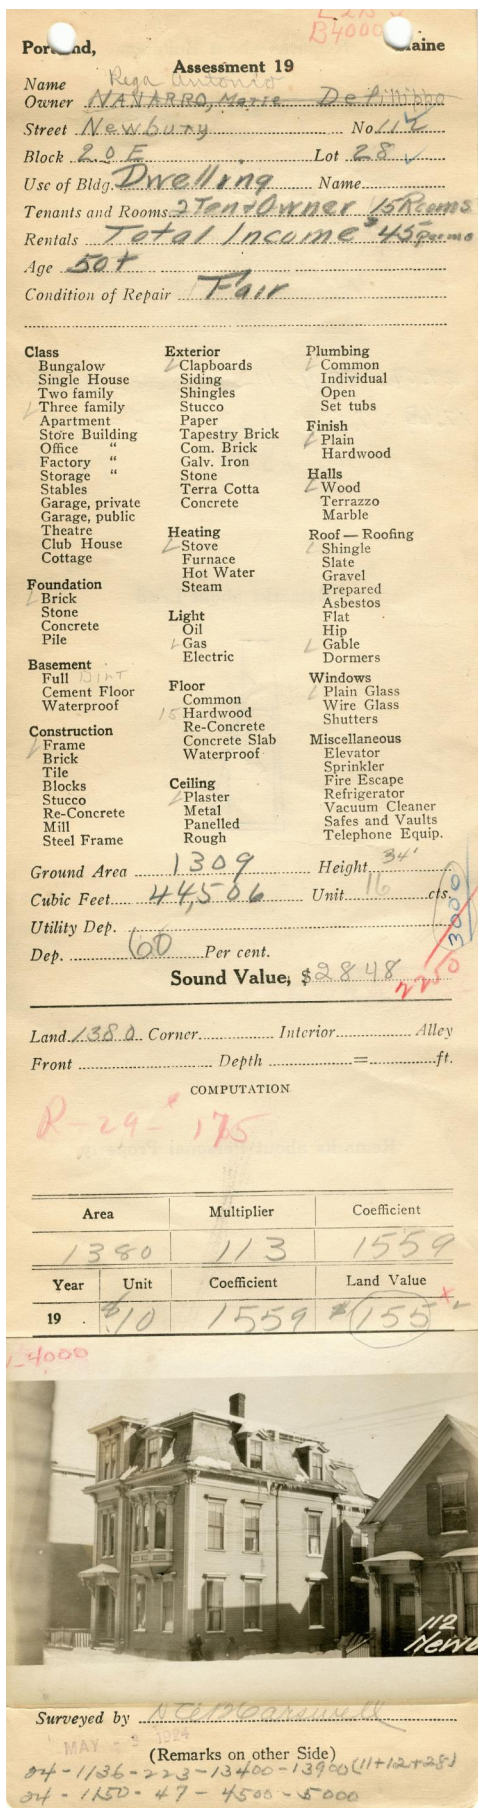 B4000
Portland, Maine
Assessment 19
Name Rega Antonio
Owner NAVARRO, Marie DeFilibbo
Street Newbury No. 112
Block 20 E Lot 28
Use of Bldg. Dwelling Name
Tenants and Rooms 2 Ten + Owner 15 Rooms
Rentals Total Income $45 per mo
Age 50+
Condition of Repair Fair
Class
Bungalow
Single House
Two family
Three family
Apartment
Store Building
Office "
Factory "
Storage "
Stables
Garage, private
Garage, public
Theatre
Club House
Cottage
Foundation
Brick
Stone
Concrete
Pile
Basement
Full Dirt
Cement Floor
Waterproof
Construction
Frame
Brick
Tile
Blocks
Stucco
Re-Concrete
Mill
Steel Frame
Exterior
Clapboards
Siding
Shingles
Stucco
Paper
Tapestry Brick
Com. Brick
Galv. Iron
Stone
Terra Cotta
Concrete
Heating
Stove
Furnace
Hot Water
Steam
Light
Oil
Gas
Electric
Floor
Common
15 Hardwood
Re-Concrete
Concrete Slab
Waterproof
Ceiling
Plaster
Metal
Panelled
Rough
Plumbing
Common
Individual
Open
Set tubs
Finish
Plain
Hardwood
Halls
Wood
Terrazzo
Marble
Roof — Roofing
Shingle
Slate
Gravel
Prepared
Asbestos
Flat
Hip
Gable
Dormers
Windows
Plain Glass
Wire Glass
Shutters
Miscellaneous
Elevator
Sprinkler
Fire Escape
Refrigerator
Vacuum Cleaner
Safes and Vaults
Telephone Equip.
Ground Area 1309 Height 34'
Cubic Feet 44,506 Unit 16 cts.
3000
Utility Dep.
Dep. 60 Per cent.
Sound Value, $2848
2250
Land 1380 Corner Interior Alley
Front Depth = ft.
COMPUTATION
R-29-$175
Area Multiplier Coefficient
1380 113 1559
Year Unit Coefficient Land Value
19 $.10 1559 $155
4000
112
Newb
Surveyed by
MAY 3 1924
(Remarks on other Side)
24-1136-223-13400-13900 (11+12+28)
24-1150-47-4500-5000